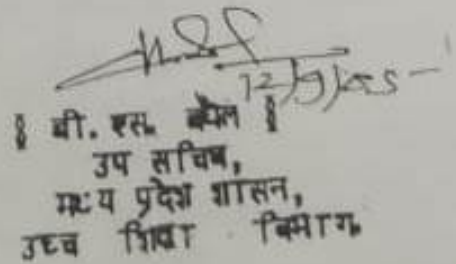 § बी. एस. बघेल §
उप सचिव,
मध्य प्रदेश शासन,
उच्च शिक्षा विभाग.